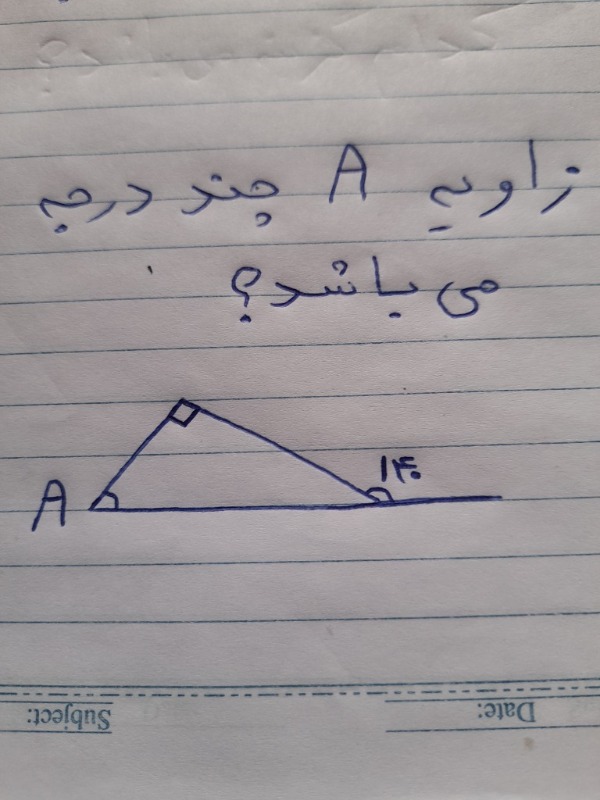 زاویه A چند درجه
می باشد؟
۱۴۰
A
Subject:
Date: